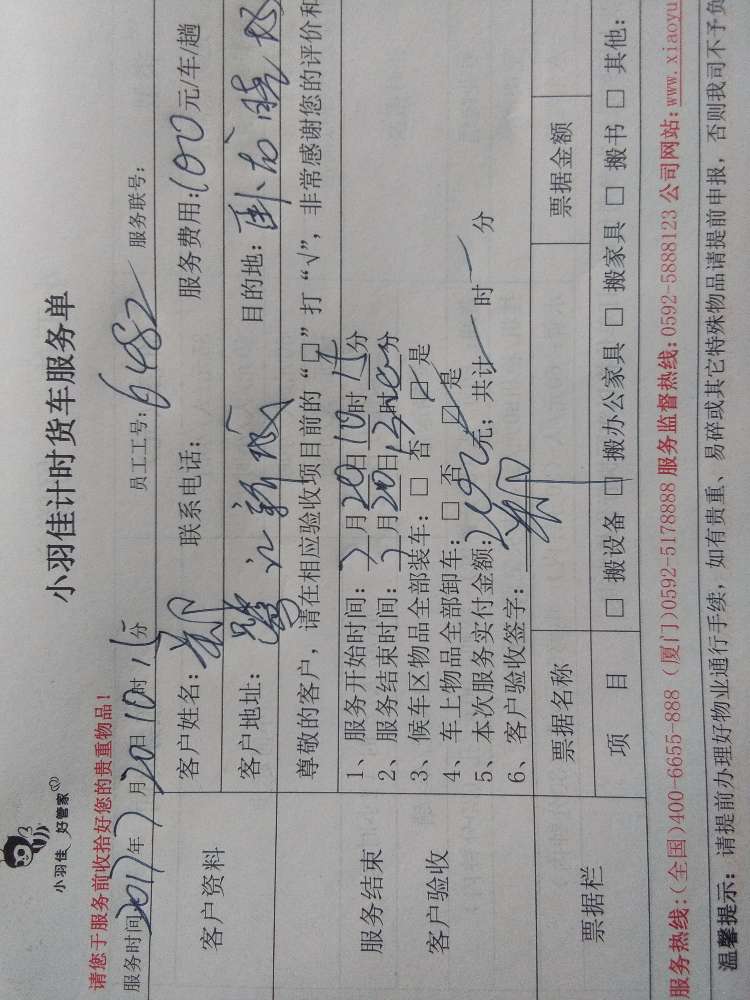 小羽佳 好管家
小羽佳计时货车服务单
请您于服务前收拾好您的贵重物品！
服务时间：2017年7月20日10时15分 员工工号：6482 服务联号：
客户资料
客户姓名：郑 联系电话： 服务费用：100元/车/趟
客户地址： 目的地：卧龙晓城
服务结束
客户验收
尊敬的客户，请在相应验收项目前的“□”打“√”，非常感谢您的评价和
1、服务开始时间：7月20日10时15分
2、服务结束时间：7月20日12时分
3、候车区物品全部装车：□ 否 ☑ 是
4、车上物品全部卸车：□ 否 ☑ 是
5、本次服务实付金额：元；共计 时 分
6、客户验收签字：郑
票据栏
票据名称 票据金额
项 目 □ 搬设备 □ 搬办公家具 □ 搬家具 □ 搬书 □ 其他：
服务热线：（全国）400-6655-888 （厦门）0592-5178888 服务监督热线：0592-5888123 公司网站：www.xiaoyu
温馨提示：请提前办理好物业通行手续，如有贵重、易碎或其它特殊物品请提前申报，否则我司不予负